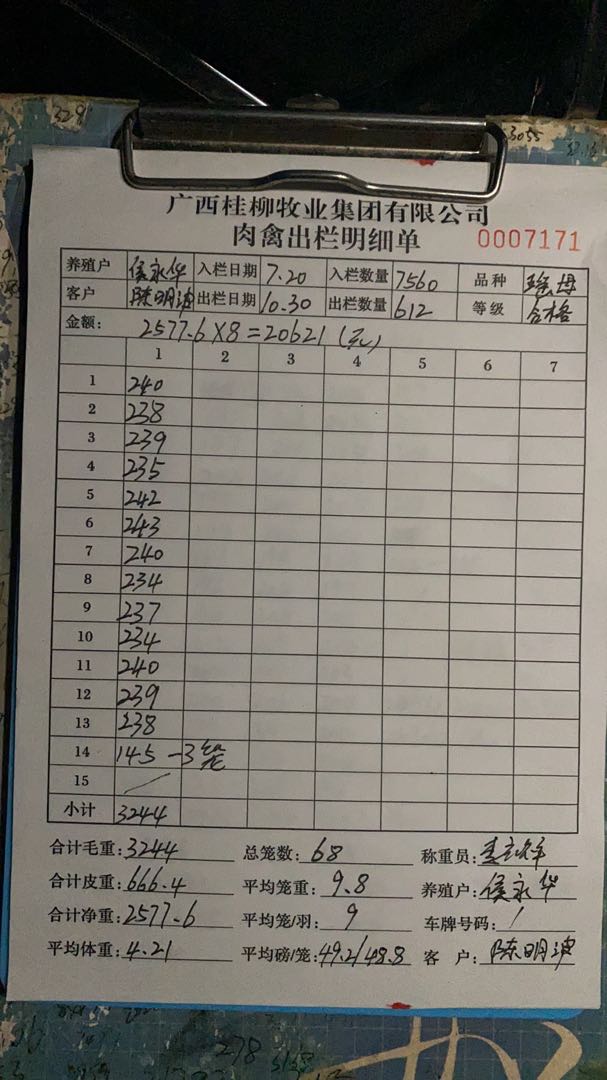 广西桂柳牧业集团有限公司
肉禽出栏明细单 0007171
养殖户 侯永华 入栏日期 7.20 入栏数量 7560 品种
客户 陈明 出栏日期 10.30 出栏数量 612 等级 合格
金额: 2577.6×8=20621(元)
1 2 3 4 5 6 7
1 240
2 238
3 239
4 235
5 242
6 243
7 240
8 234
9 237
10 234
11 240
12 239
13 238
14 145 -3笼
15 /
小计 3244
合计毛重: 3244 总笼数: 68 称重员:
合计皮重: 666.4 平均笼重: 9.8 养殖户: 侯永华
合计净重: 2577.6 平均笼/羽: 9 车牌号码: /
平均体重: 4.21 平均磅/笼: 49.2/48.8 客 户: 陈明
329
3055
278